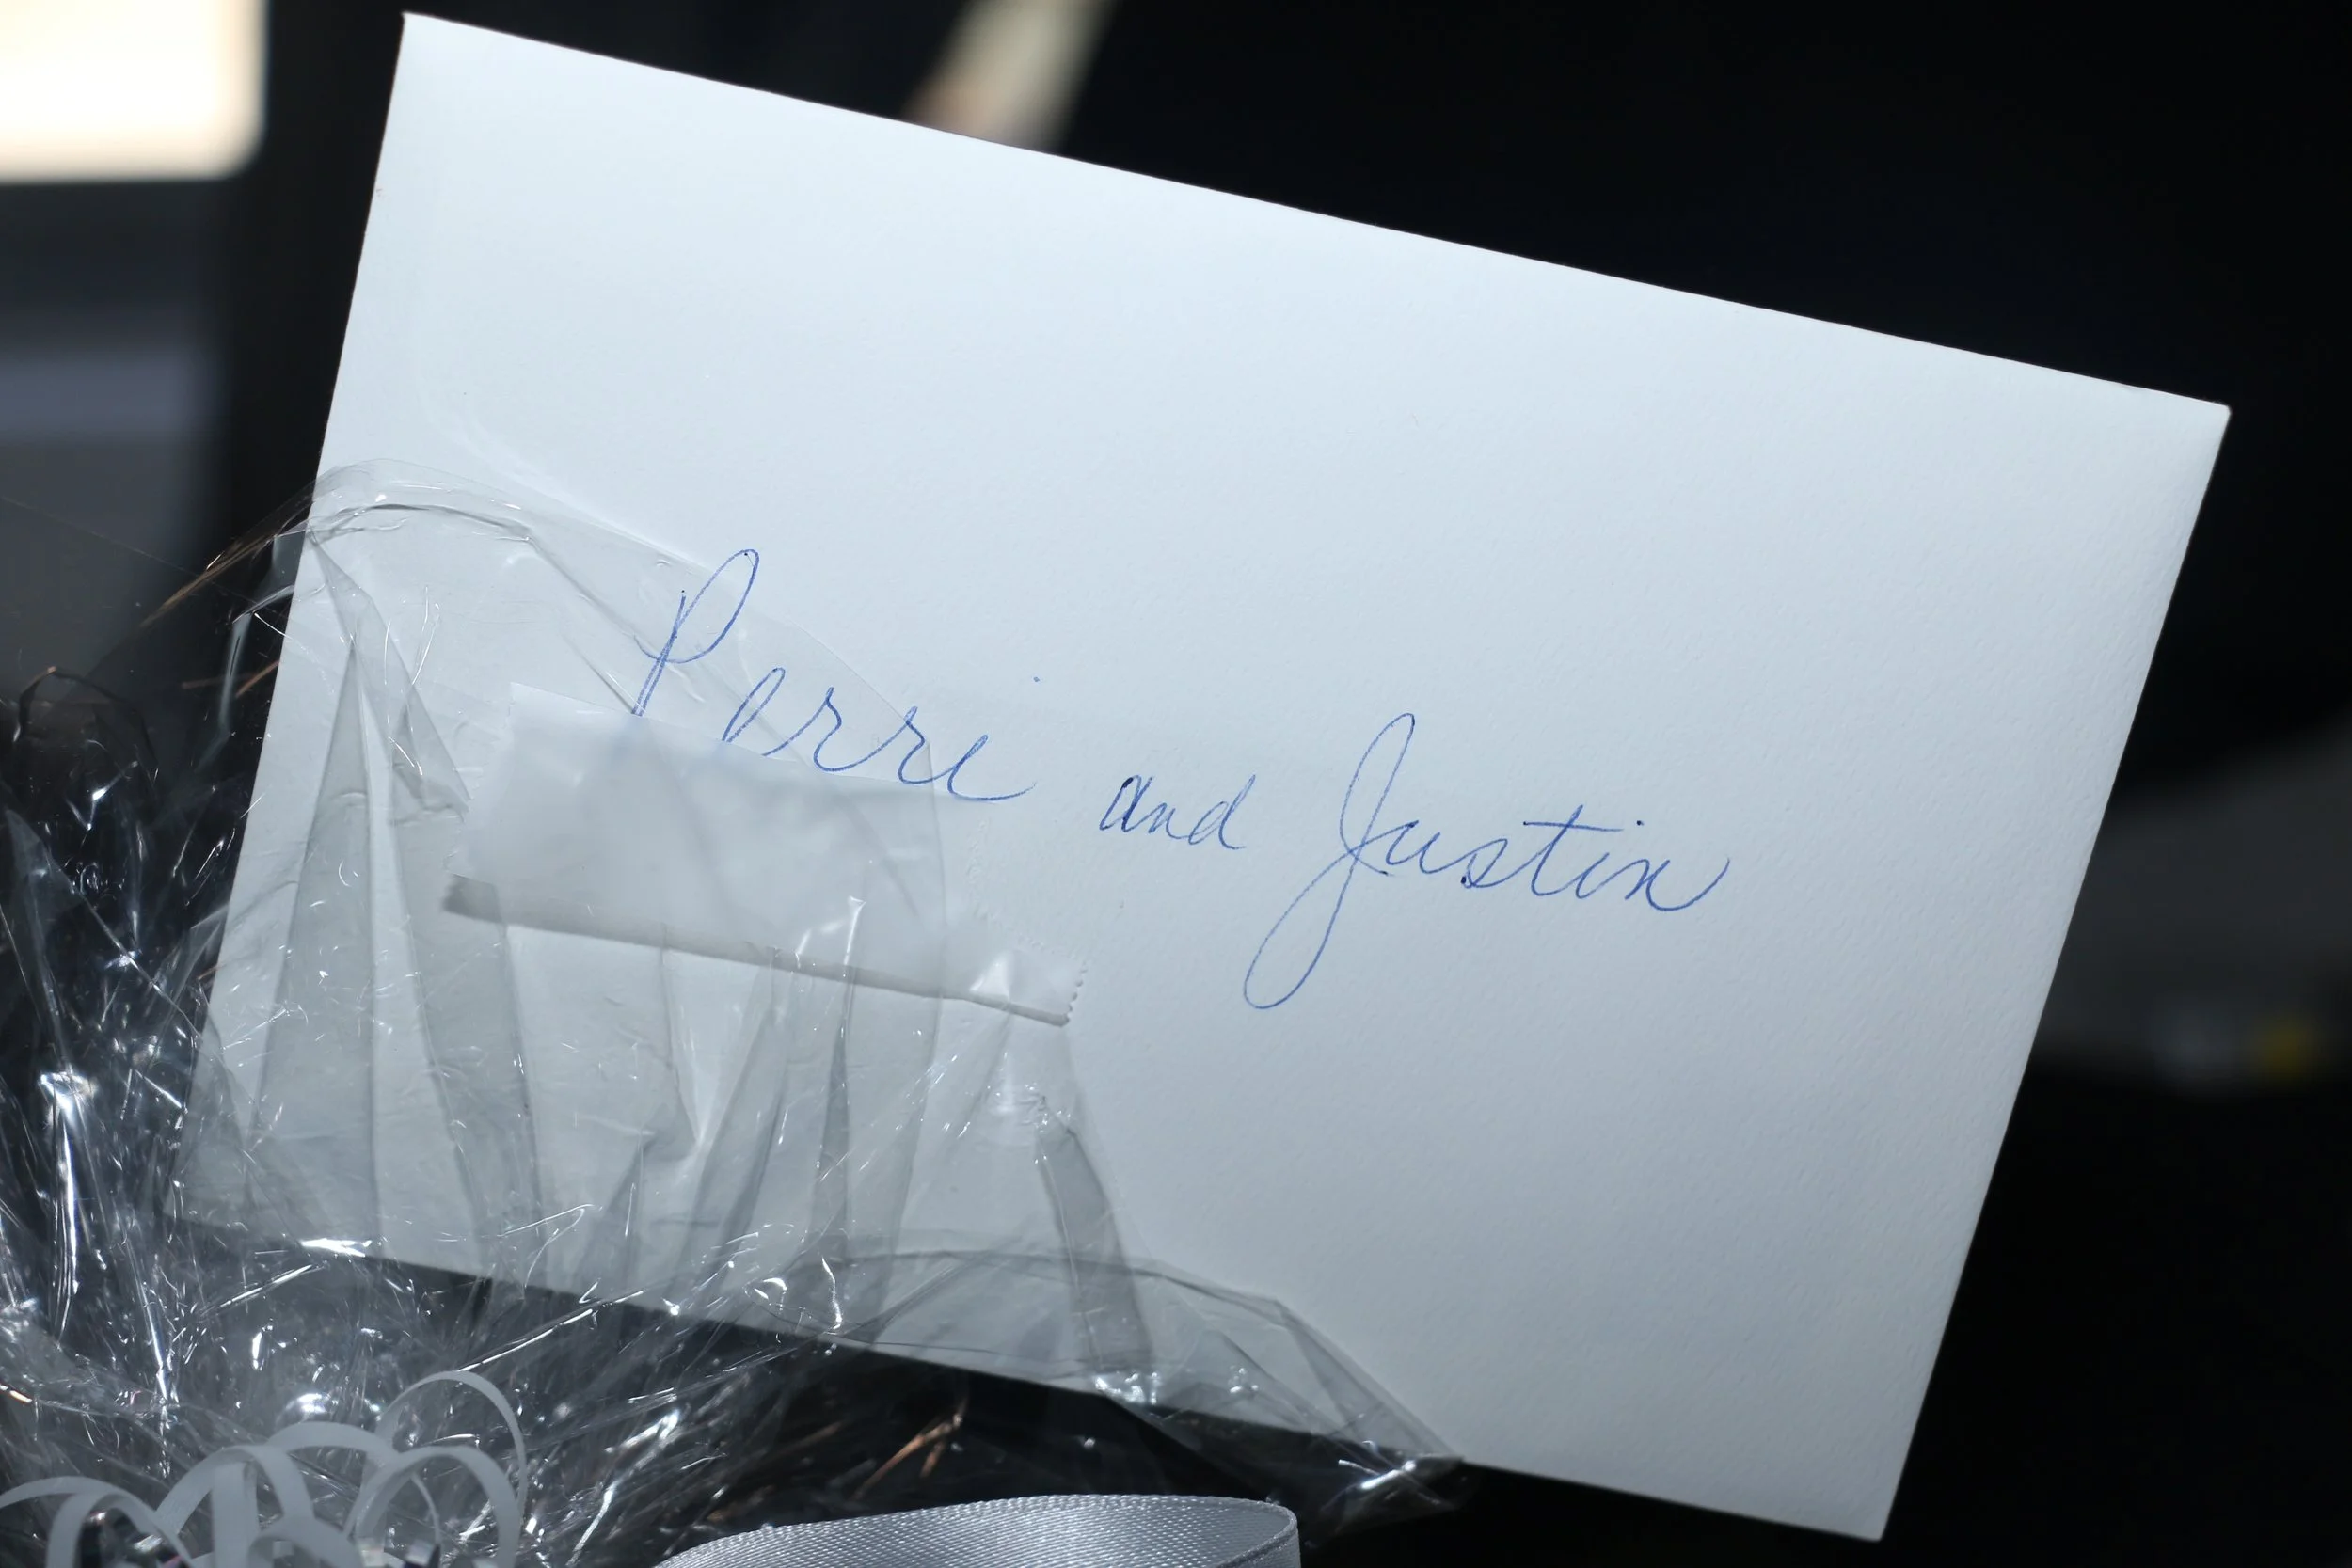 Perri and Justin